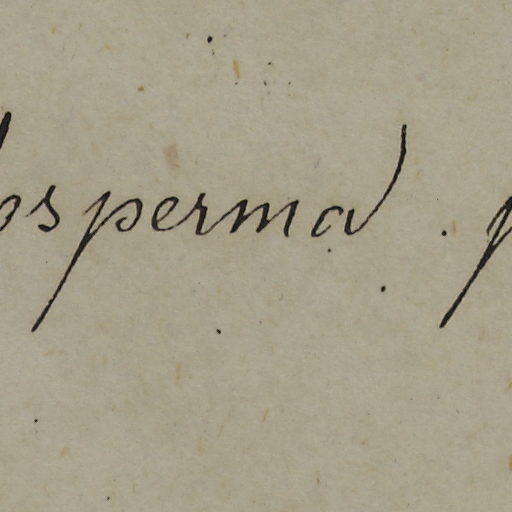 osperma . p